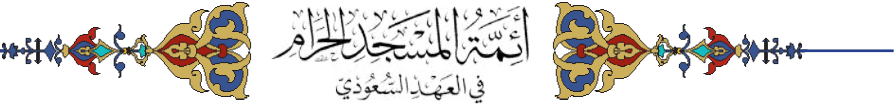 أَئِمَّةُ المَسْجِدِ الحَرَامِ
في العَهْدِ السُّعُودِيِّ